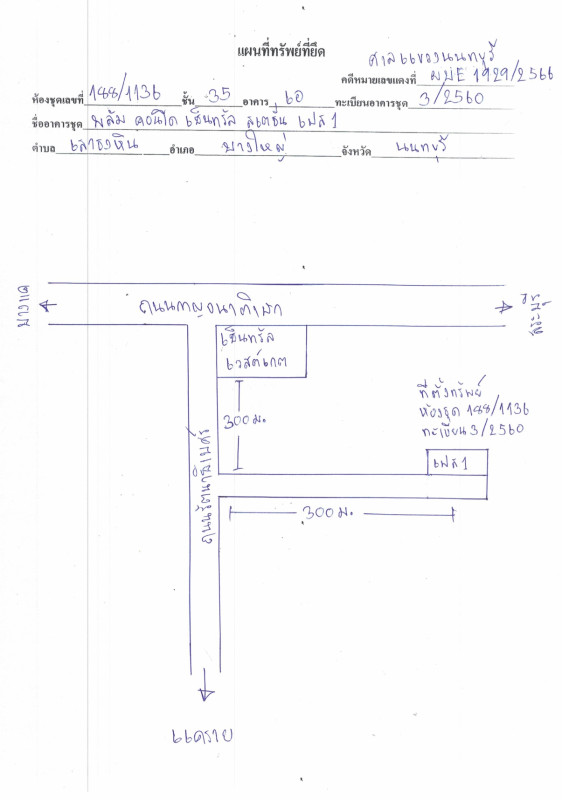 แผนที่ทรัพย์ที่ยึด
ศาลแขวงนนทบุรี
คดีหมายเลขแดงที่ ผบE 1929/2566
ห้องชุดเลขที่ 188/1136 ชั้น 35 อาคาร เอ ทะเบียนอาคารชุด 3/2560
ชื่ออาคารชุด พลัม คอนโด เซ็นทรัล สเตชั่น เฟส 1
ตำบล เสาธงหิน อำเภอ บางใหญ่ จังหวัด นนทบุรี
บางแค
ถนนกาญจนาภิเษก
เซ็นทรัล
เวสต์เกต
300 ม.
ที่ตั้งทรัพย์
ห้องชุด 188/1136
ทะเบียน 3/2560
เฟส 1
300 ม.
ถนนรัตนาธิเบศร์
แคราย